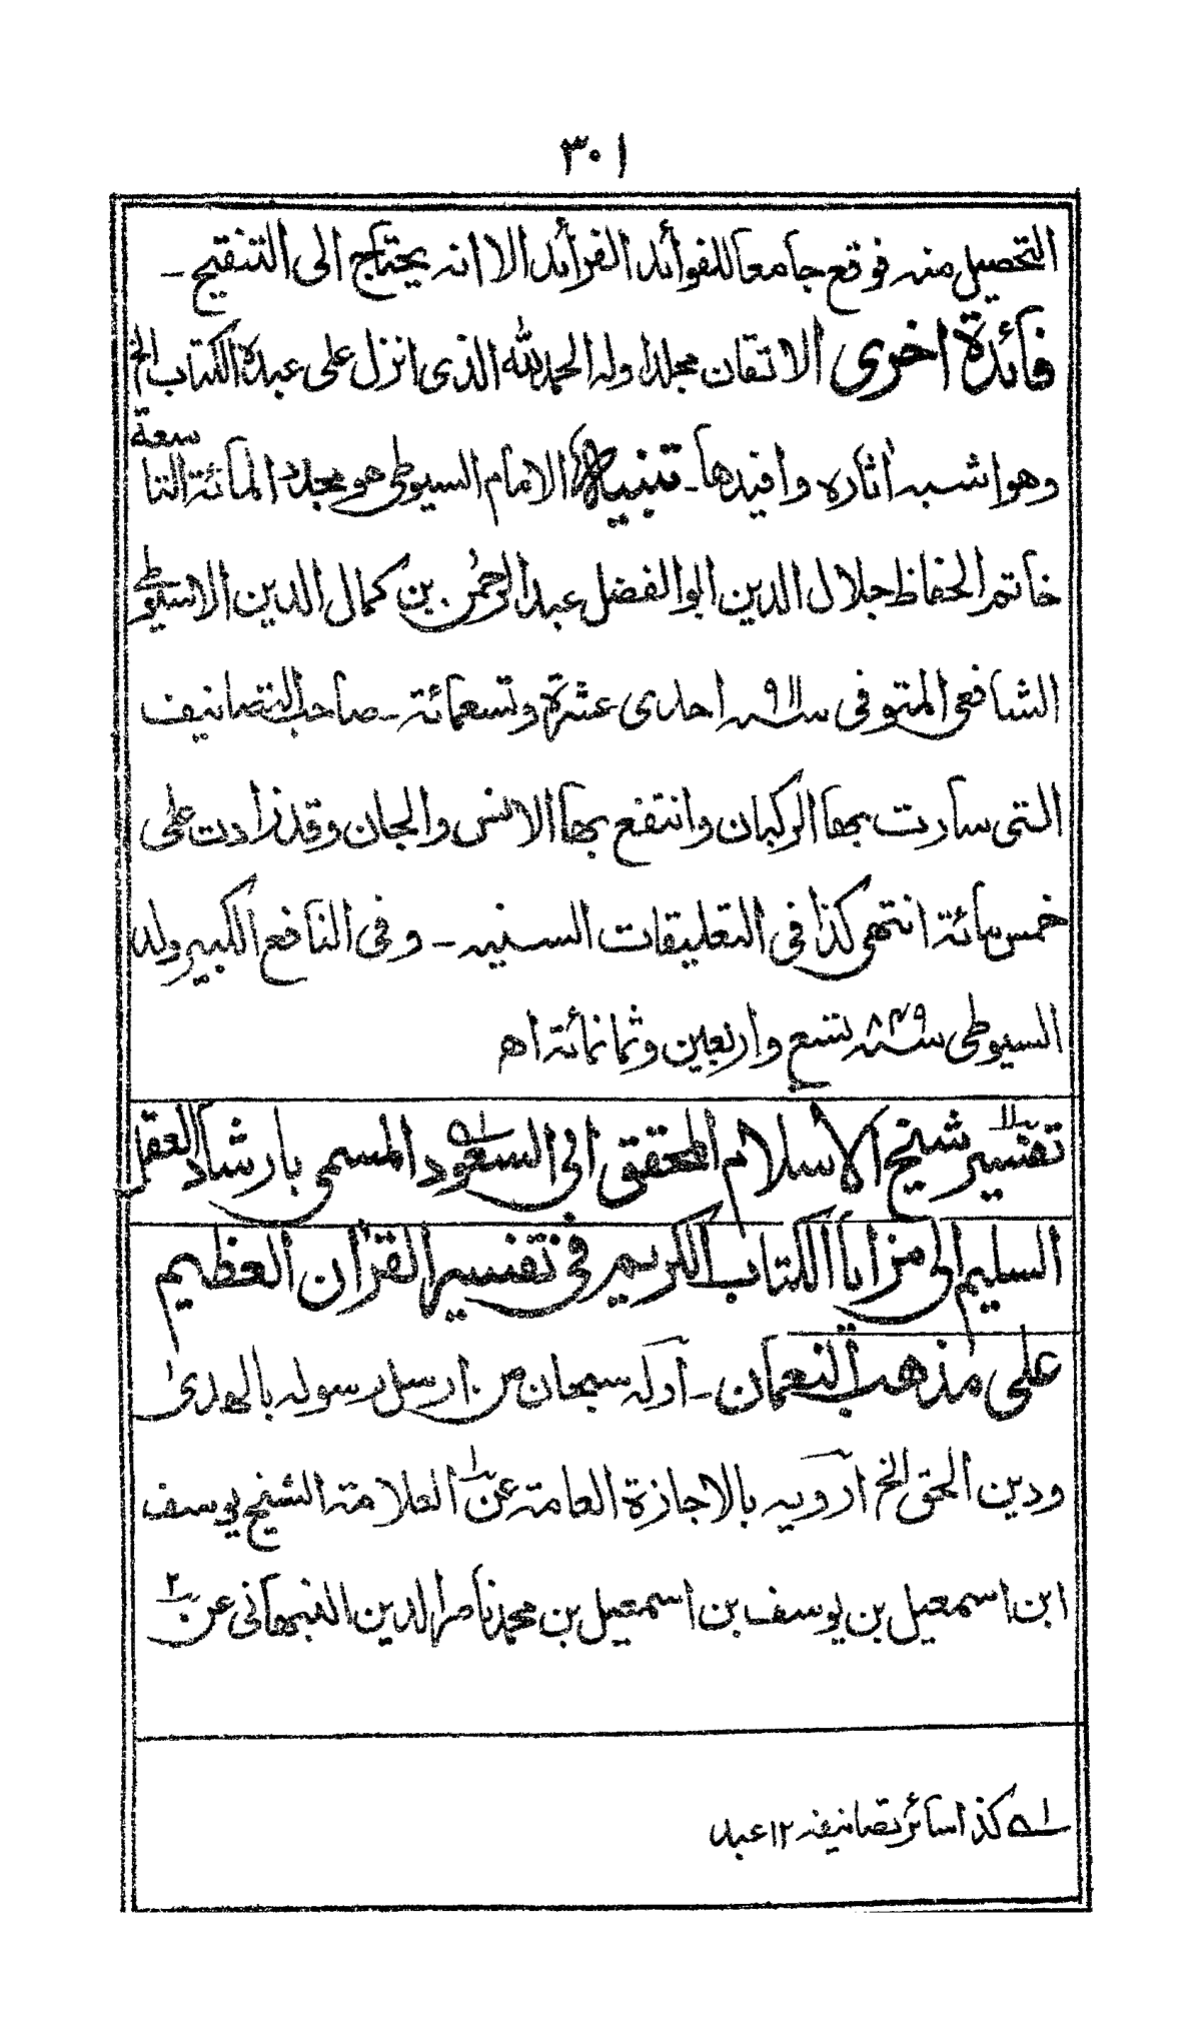 ٣٠١
التحصيل منه فوقع جامعا للفوائد الفرائد الا انه يحتاج الى التنقيح ـ
فائدة اخرى الاتقان مجلد اوله الحمد لله الذى انزل على عبده الكتاب الخ
وهو اشبه اثاره وافيدها ـ تنبيه الامام السيوطى هو مجدد المائة التاسعة
خاتم الحفاظ جلال الدين ابو الفضل عبد الرحمن بن كمال الدين الاسيوطى
الشافعى المتوفى سنه ٩١١ احدى عشرة وتسعمائة ـ صاحب التصانيف
التى سارت بها الركبان وانتفع بها الانس والجان وقد زادت على
خمس مائة انتهى كذا فى التعليقات السنيه ـ وفى النافع الكبير ولد
السيوطى سنه ٨٤٩ تسع واربعين وثمانمائة اھ
تفسير شيخ الاسلام المحقق ابى السعود المسمى بارشاد العقل
السليم الى مزايا الكتاب الكريم فى تفسير القرآن العظيم
على مذهب النعمان ـ اوله سبحان من ارسل رسوله بالهدى
ودين الحق الخ ارويه بالاجازة العامة عن العلامة الشيخ يوسف
ابن اسمعيل بن يوسف بن اسمعيل بن محمد ناصر الدين النبهانى عن
كذا سائر تصانيفه ١٢ عبد